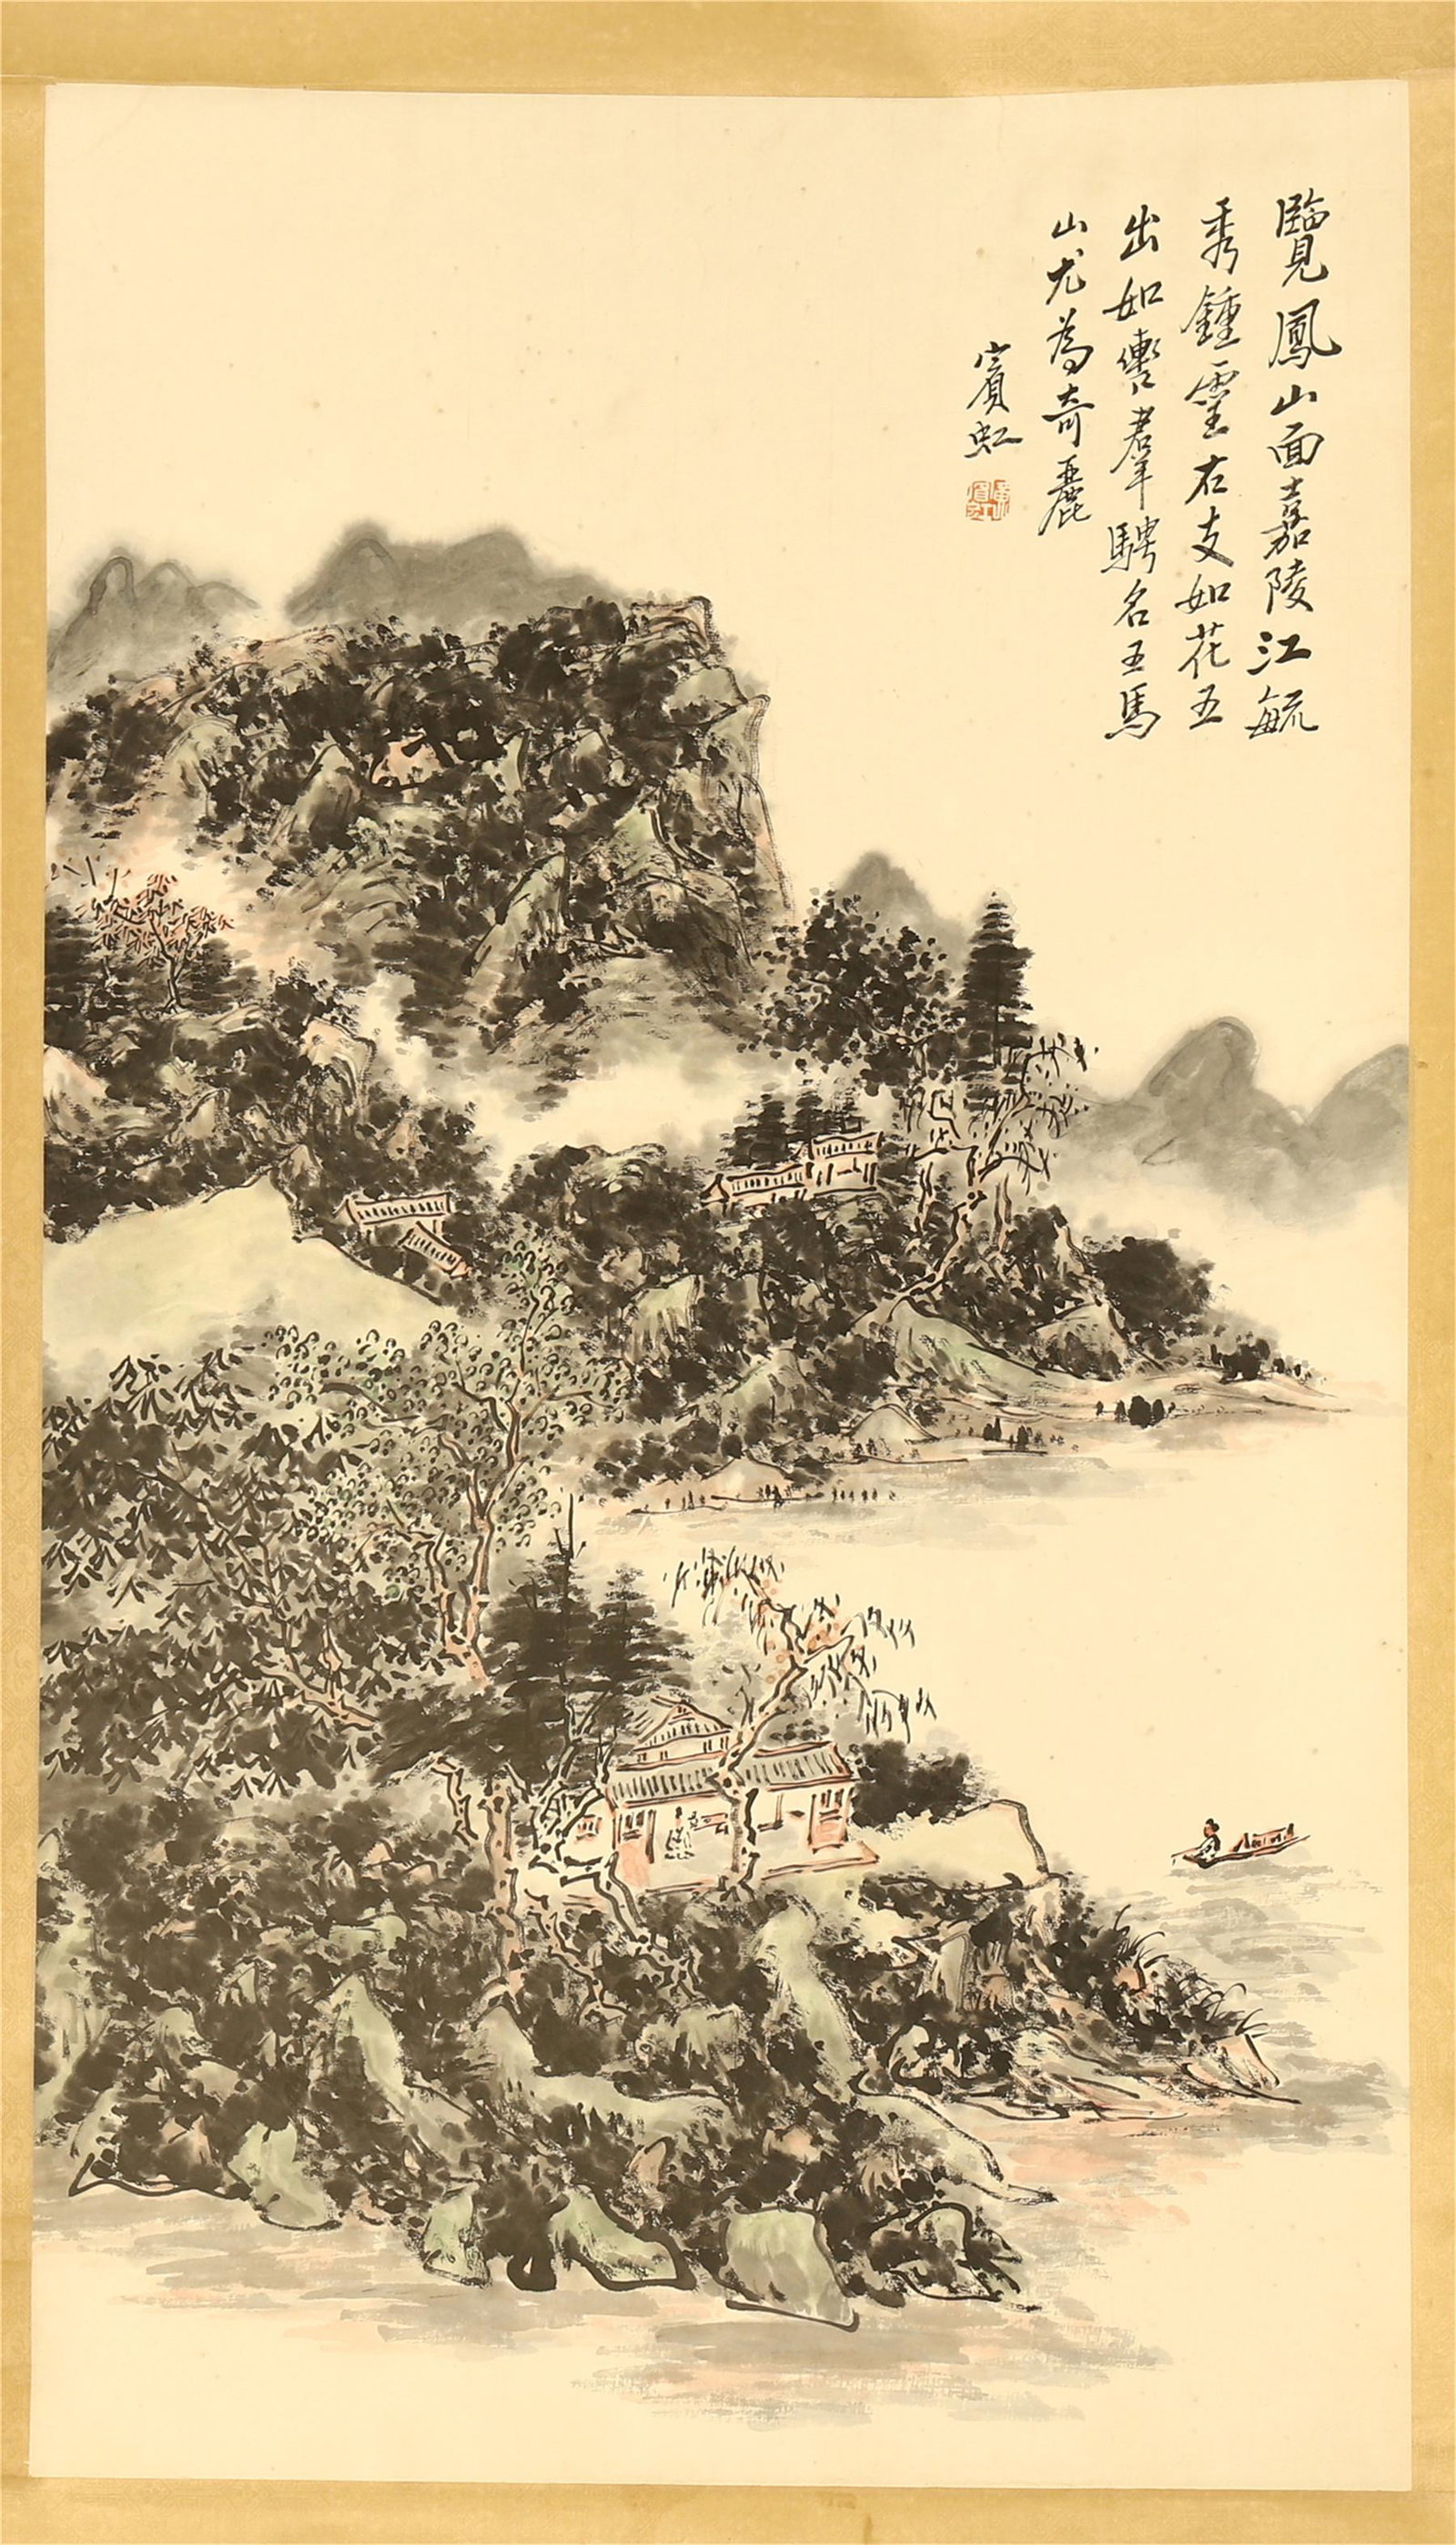 覽鳳山面嘉陵江毓
秀鍾靈右支如花五
出如轡羣騁名五馬
山尤為奇麗
賓虹